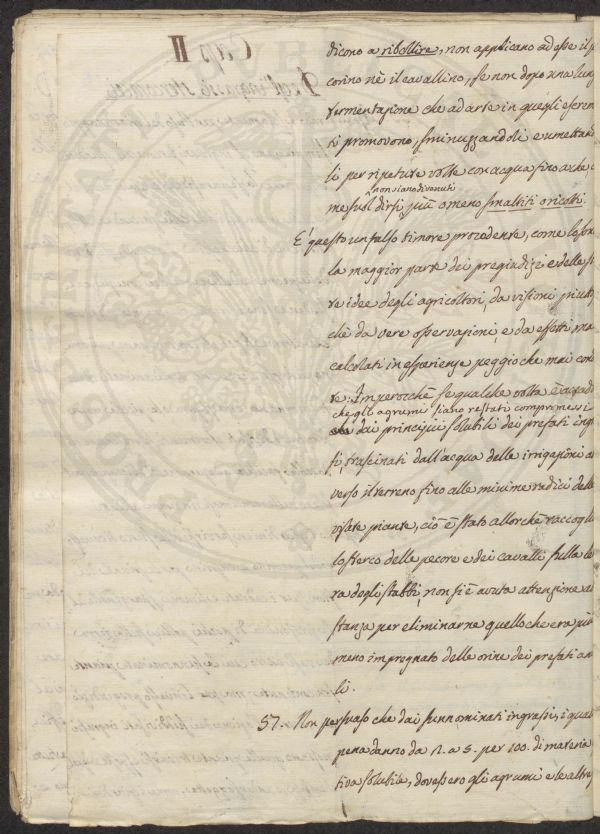 dicono a ribollire, non applicano ad esse il p
corino nè il cavallino, se non dopo una lung
fermentazione che ad arte in quegli escrem
ti promovono, sminuzzandoli e umettand
li per ripetute volte con acqua fino a che
non siano divenuti
me suol dirsi più o meno smaltiti o ricotti.
E' questo un falso timore procedente, come lo son
la maggior parte dei pregiudizi e delle
re idee degli agricoltori, da visioni piutto
chè da vere osservazioni, e da effetti ma
calcolati in esperienze peggio che mai con
te. Imperocchè se qualche volta è accad
che gli agrumi siano restati compromessi
dai principii solubili dei prefati ing
si, trascinati dall'acqua delle irrigazioni a
verso il terreno fino alle minime radici delle
piante, ciò è stato allorchè raccogli
lo sterco delle pecore e dei cavalli sulla le
ra degli stabbi, non si è avuta attenzione
stanza per eliminarne quello che era più
meno impregnato delle orine dei prefati an
li.
57. Non persuaso che dai sunnominati ingrassi, i qual
pena danno da 2. a 5. per 100. di materia
tiva solubile, dovessero gli agrumi e le altre